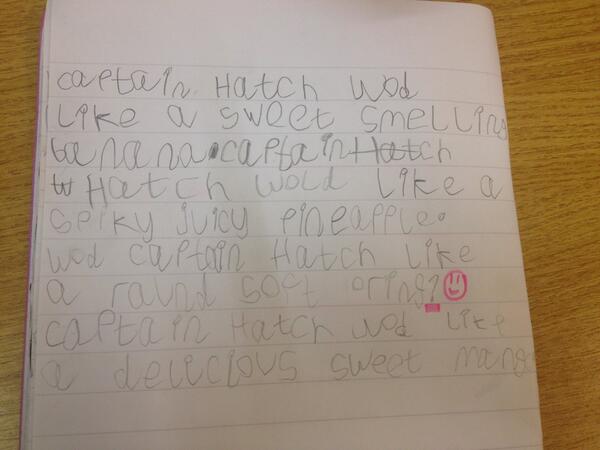 captain Hatch wod
Like a sweet smelling
banana.captain Hatch
Hatch wold Like a
Spiky juicy pineapple.
wod captain Hatch Like
a raund soft oring?
captain Hatch wod Like
a delicious sweet mango